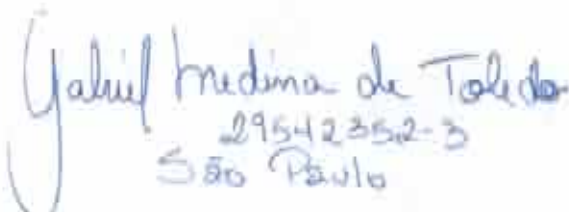 Gabriel Medina de Toledo
29542352-3
São Paulo